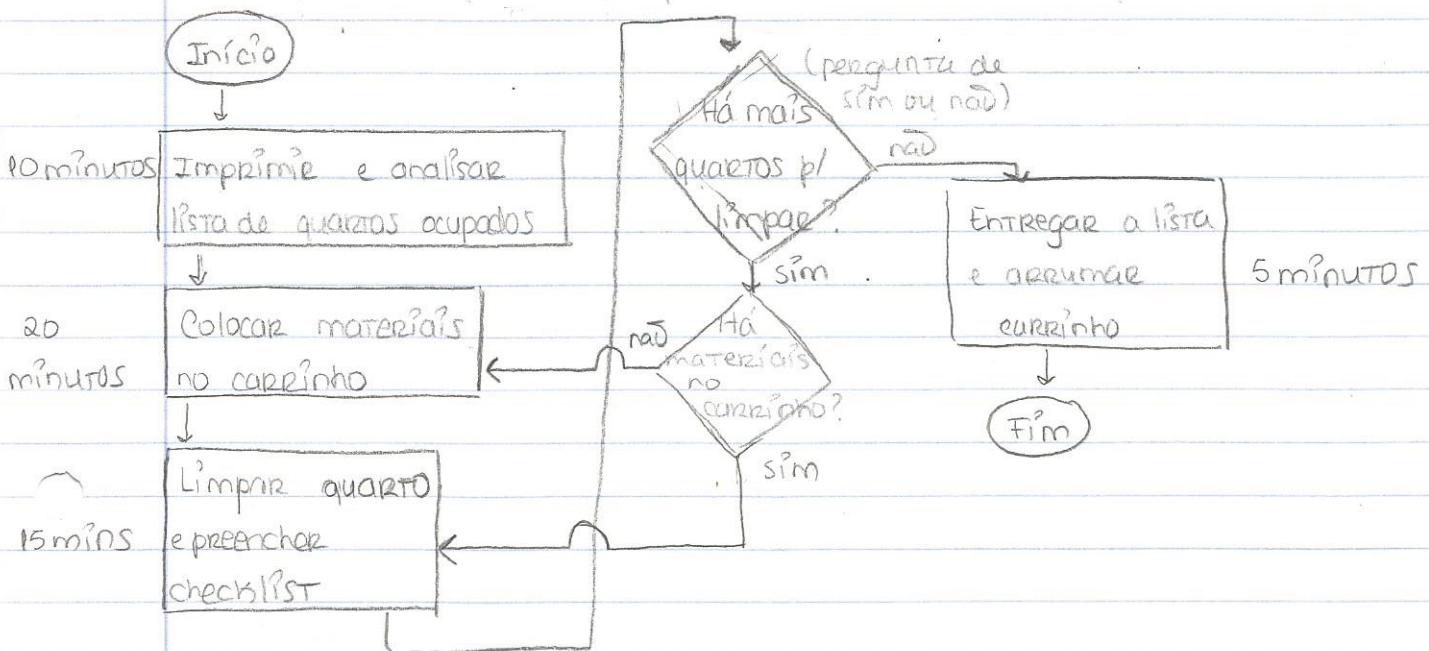 Início
10 minutos
Imprimir e analisar
lista de quartos ocupados
20
minutos
Colocar materiais
no carrinho
15 mins
Limpar quarto
e preencher
checklist
(pergunta de
sim ou não)
Há mais
quartos p/
limpar?
não
sim
Há
materiais
no
carrinho?
não
sim
Entregar a lista
e arrumar
carrinho
5 minutos
Fim